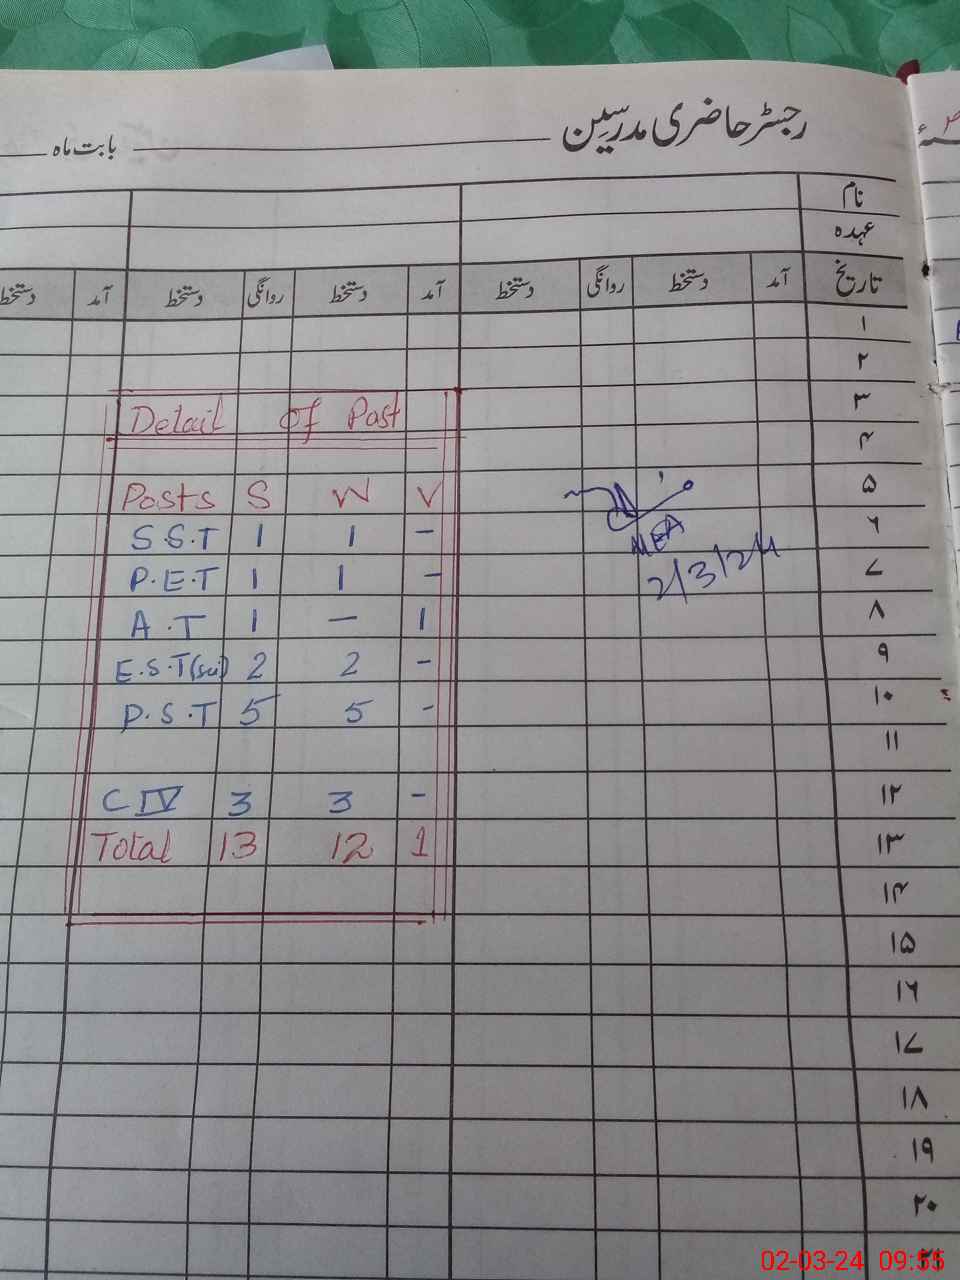 رجسٹر حاضری مدرسین
بابت ماہ
نام
عہدہ
تاریخ آمد دستخط روانگی دستخط آمد دستخط روانگی دستخط آمد دستخط
۱
۲
۳
Detail Of Post
۴
Posts S W V
۵
S.S.T 1 1 -
۶
MEA
P.E.T 1 1 -
2/3/24
۷
A.T 1 - 1
۸
E.S.T(sci) 2 2 -
۹
P.S.T 5 5 -
۱۰
۱۱
C IV 3 3 -
۱۲
Total 13 12 1
۱۳
۱۴
۱۵
۱۶
۱۷
۱۸
۱۹
۲۰
۲۱
02-03-24 09:55